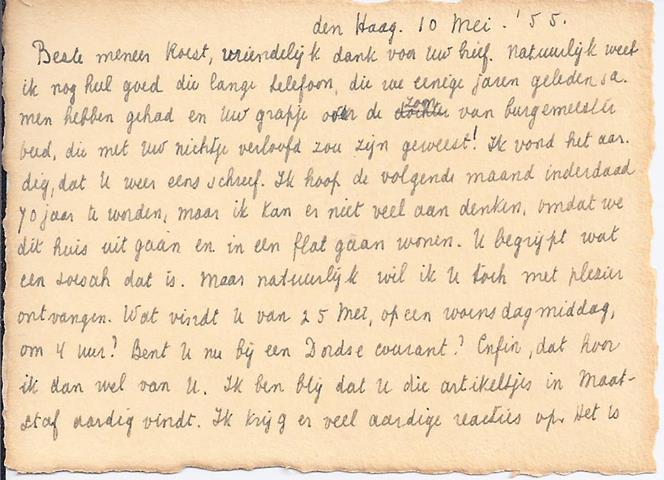 den Haag. 10 Mei. '55.
Beste meneer Roest, vriendelijk dank voor Uw brief. Natuurlijk weet
ik nog heel goed die lange telefoon, die we eenige jaren geleden sa-
men hebben gehad en Uw grapje over de dochter zoon van burgemeester
die met Uw nichtje verloofd zou zijn geweest! Ik vond het aar-
dig, dat U weer eens schreef. Ik hoop de volgende maand inderdaad
70 jaar te worden, maar ik kan er niet veel aan denken, omdat we
dit huis uit gaan en in een flat gaan wonen. U begrijpt wat
een soesah dat is. Maar natuurlijk wil ik U toch met plezier
ontvangen. Wat vindt U van 25 Mei, op een woensdagmiddag,
om 4 uur? Bent U nu bij een Dordse courant? Enfin, dat hoor
ik dan wel van U. Ik ben blij dat U die artikeltjes in Maat-
staf aardig vindt. Ik krijg er veel aardige reacties op. Het is